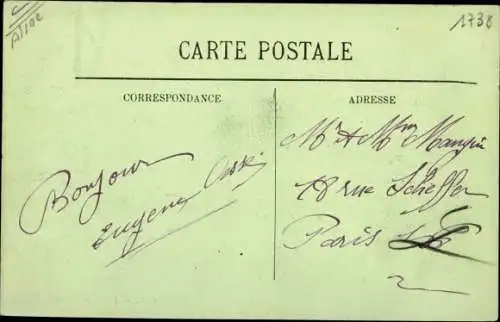 1738
CARTE POSTALE
CORRESPONDANCE
ADRESSE
Bonjour
Eugene
Mr & Mme Mangin
18 rue Scheffer
Paris